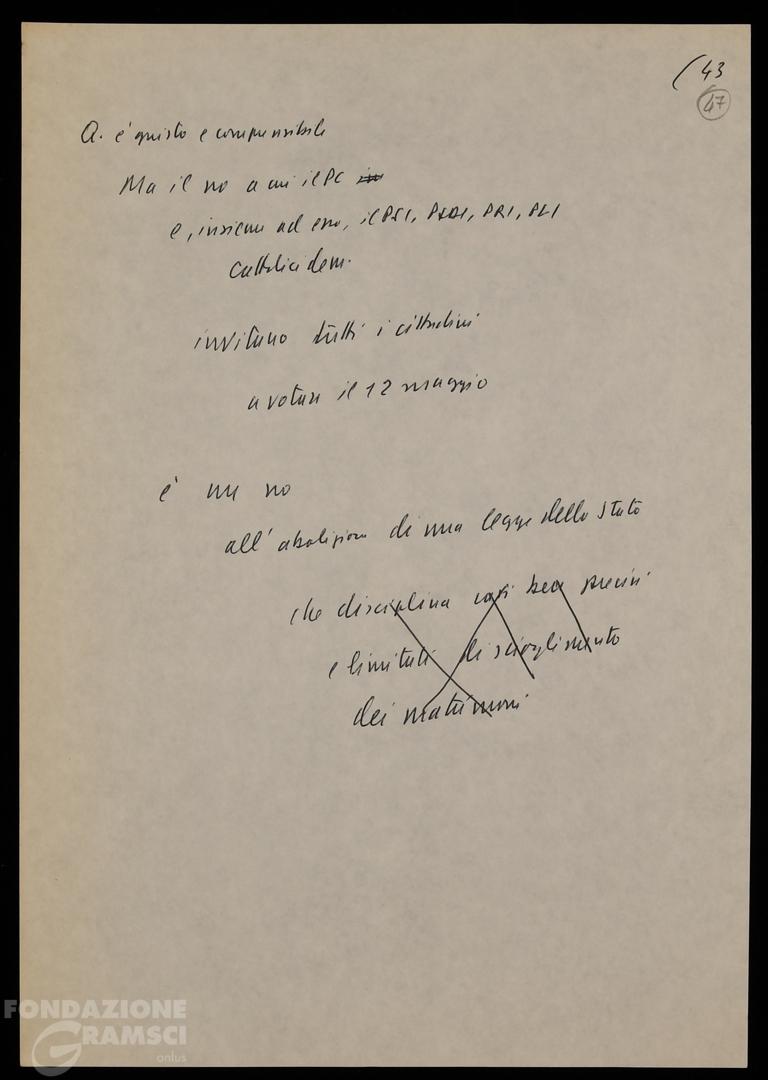 (43
47
a. è giusto e comprensibile
Ma il no a cui il PC
e, insieme ad esso, il PSI, PSDI, PRI, PLI
Cattolici dem.
invitano tutti i cittadini
a votare il 12 maggio
è un no
all'abolizione di una legge dello Stato
che disciplina casi ben precisi
e limitati di scioglimento
dei matrimoni
FONDAZIONE
GRAMSCI
onlus